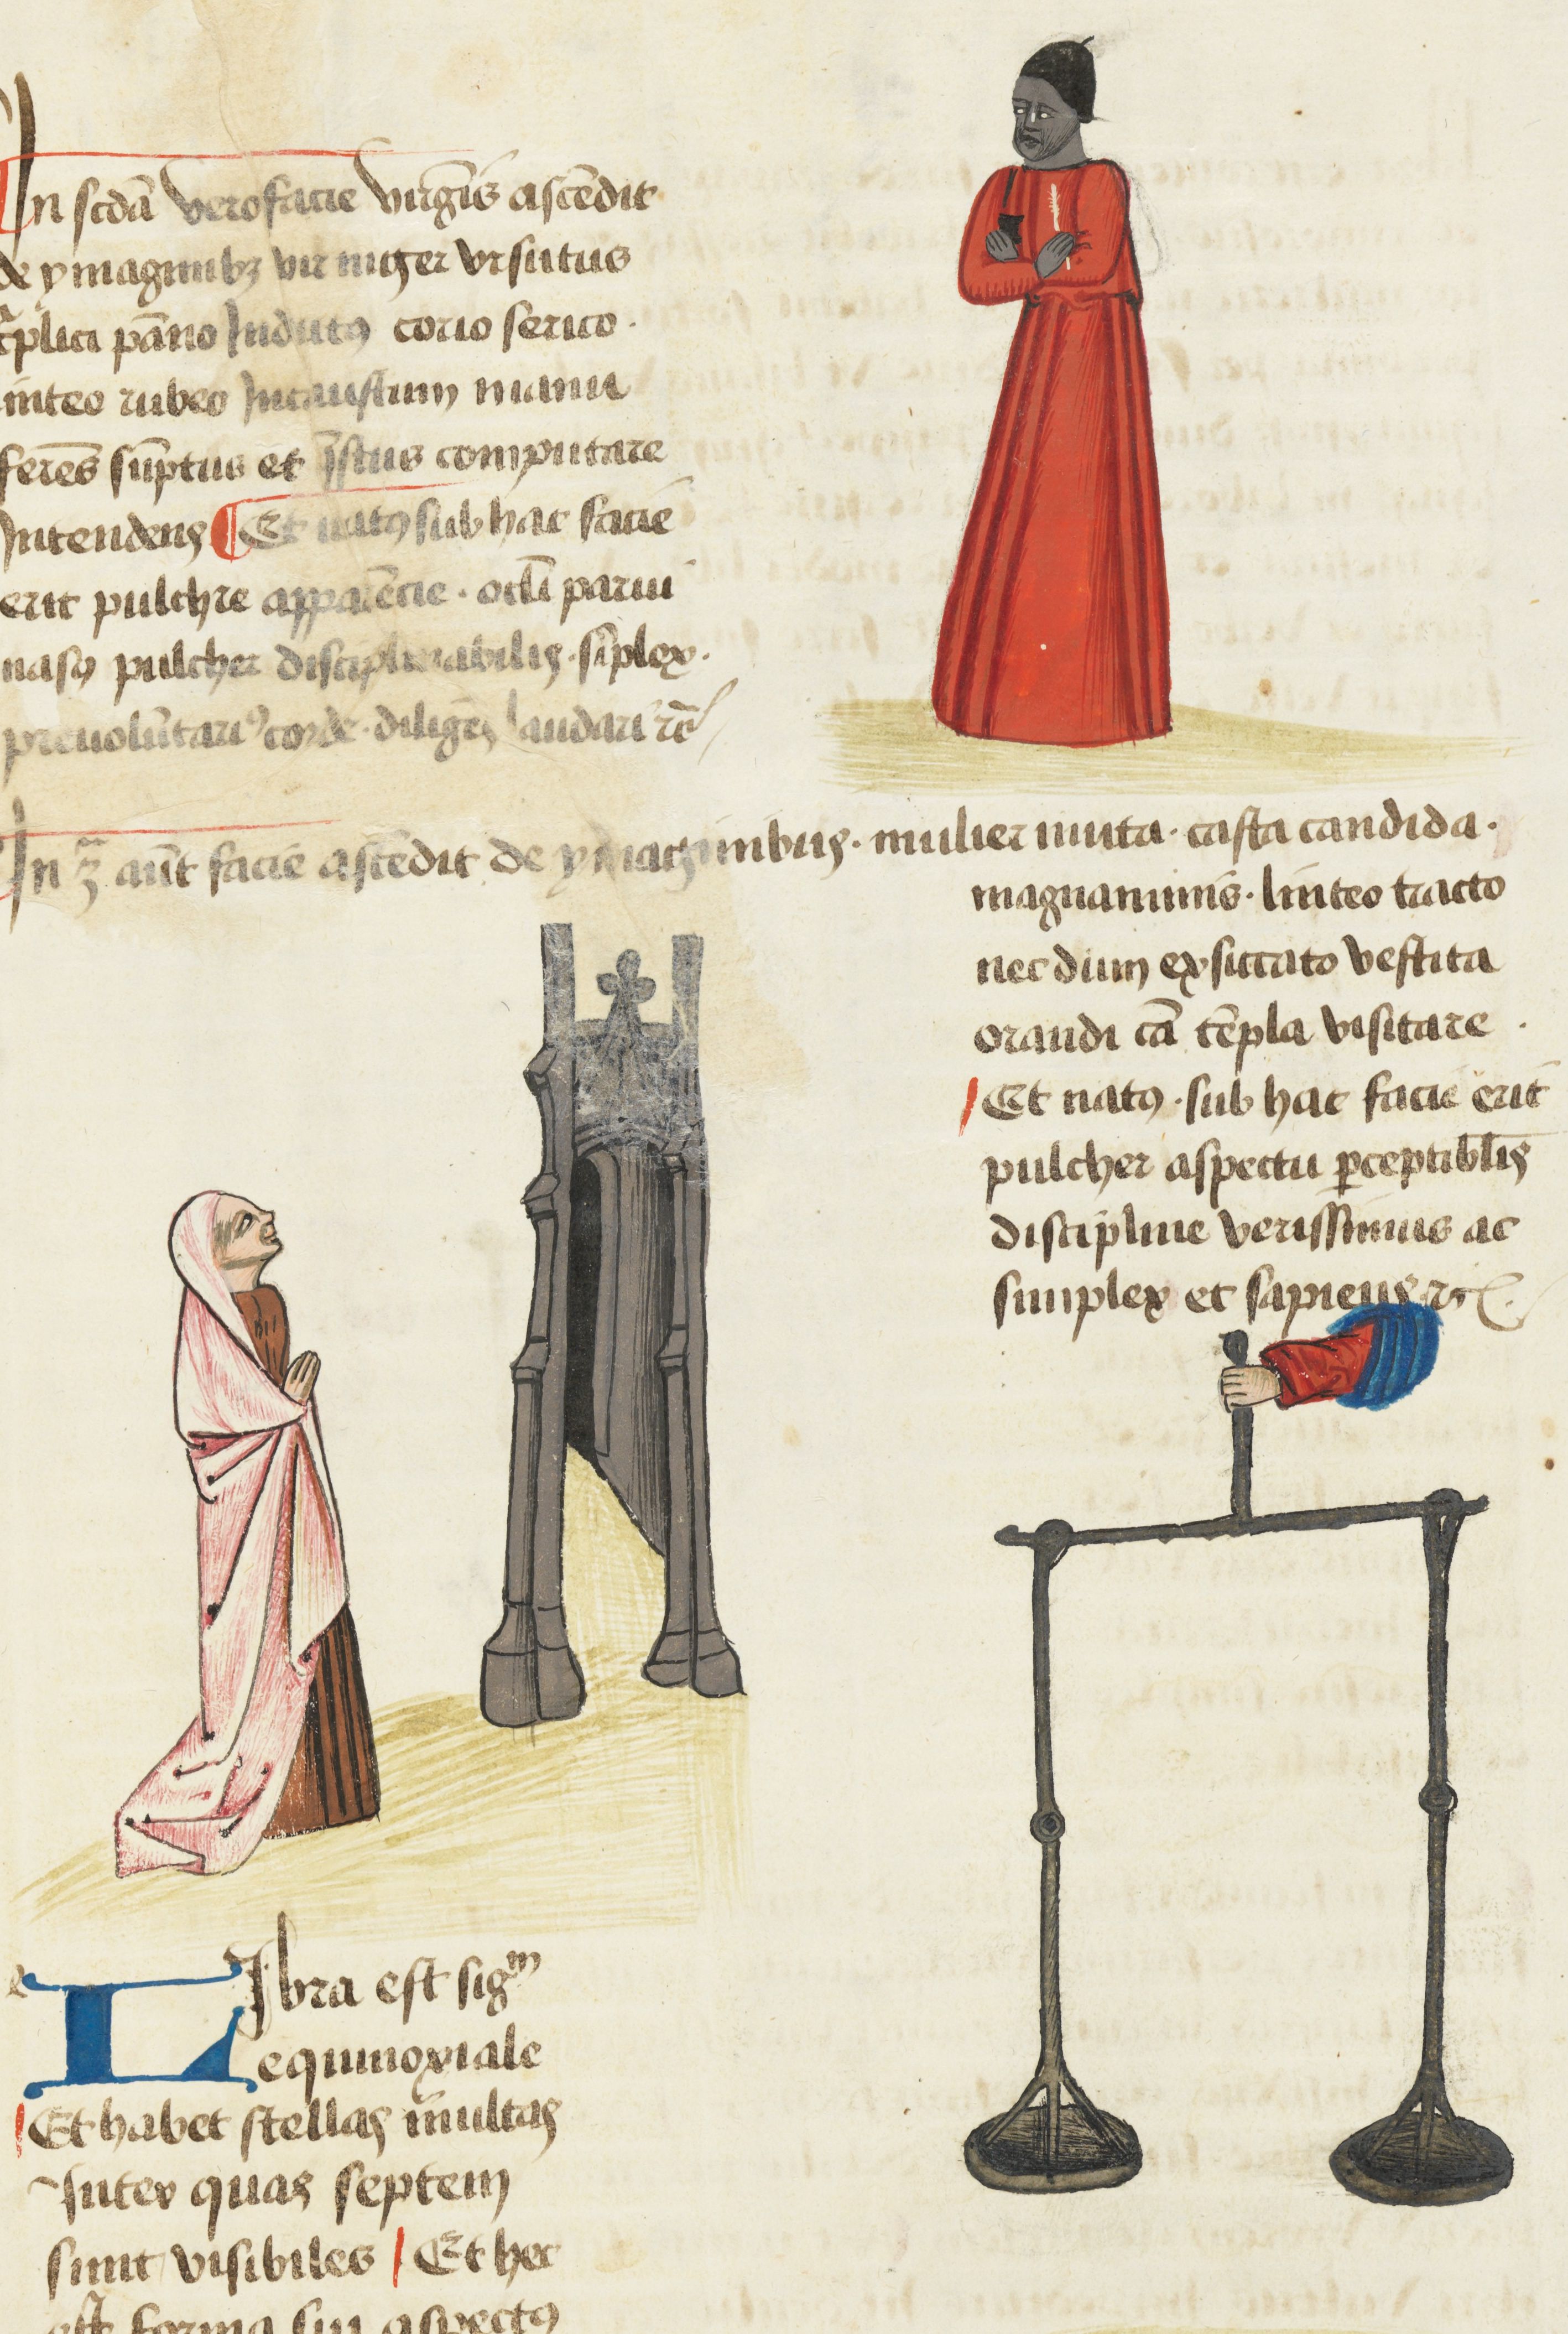 In scdā vero facie virgīs ascēdit
de ymaginibꝫ vir niger vrsutus
tͣplici pāno Indutꝯ corio serico ·
linteo rubeo Incaustum manu
ferēs sūptus et q̄stus computare
Intendens ¶ Et natꝯ sub hac facie
erit pulchre apparēcie · octi parui
nasꝯ pulcher disciplinabilis · sīplex ·
preuolūtariꝯ corde · diligēs laudari rē
In ꝫͣ aūt facie ascēdit de ymaginibus · mulier muta · casta candida ·
magnanimis · linteo tracto
nec dium exsiccato vestita
orandi cā tēpla visitare ·
Et natꝯ · sub hac facie erit
pulcher aspectu ꝑceptibl̄is
discipline verissimus ac
simplex et sapiens
LIbra est sigᵐ
equinoxiale
Et habet stellas multas
Inter quas septem
sunt visibiles Et hec
est forma sui aspectꝯ